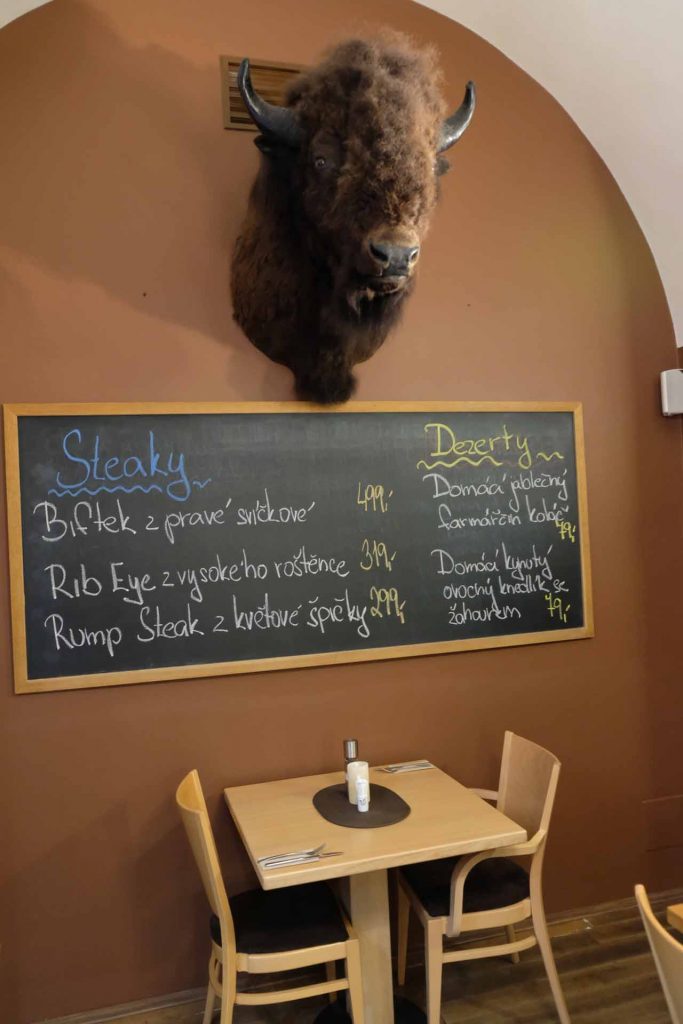 Steaky
Biftek z pravé svíčkové 499,-
Rib Eye z vysokého roštěnce 319,-
Rump Steak z květové špičky 299,-
Dezerty
Domácí jablečný
farmářčin koláč
79,-
Domácí kynutý
ovocný knedlík se
žahourem 79,-